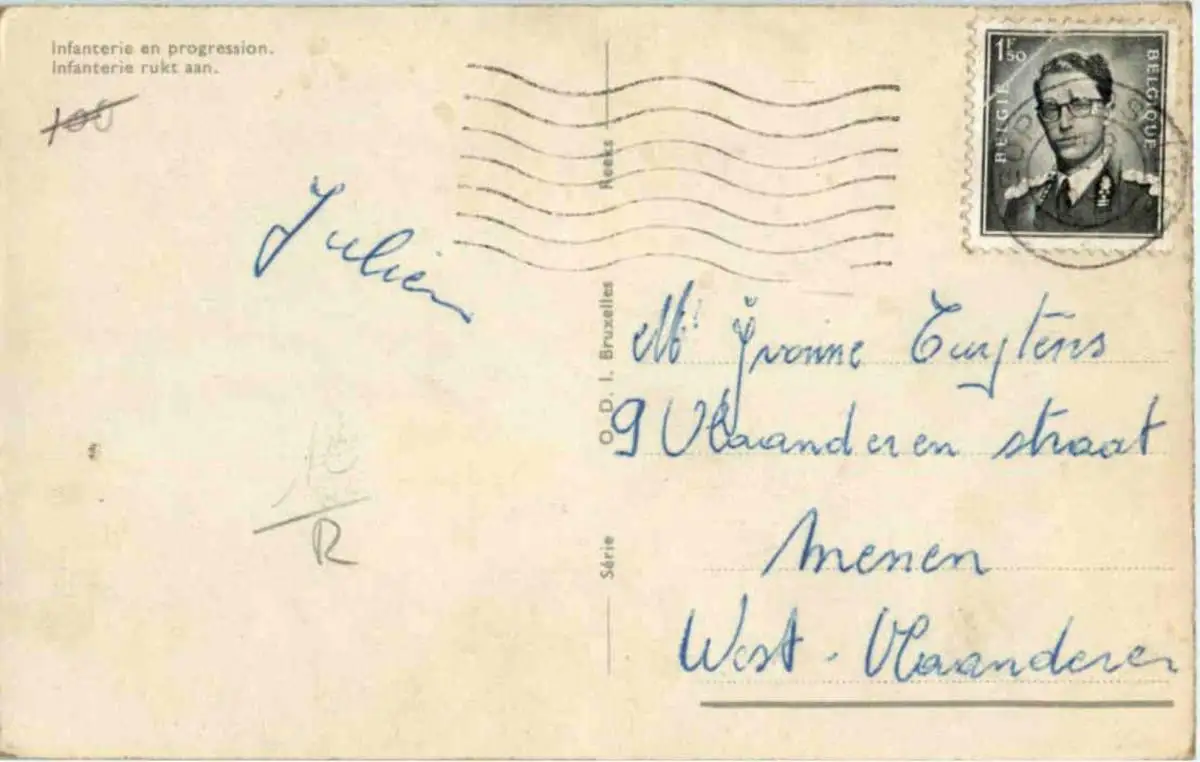 Infanterie en progression.
Infanterie rukt aan.
100
Julien
R
Série
O. D. I. Bruxelles
Reeks
1F50
BELGIE
BELGIQUE
Yvonne Tuytens
9 Vlaanderen straat
Menen
West-Vlaanderen